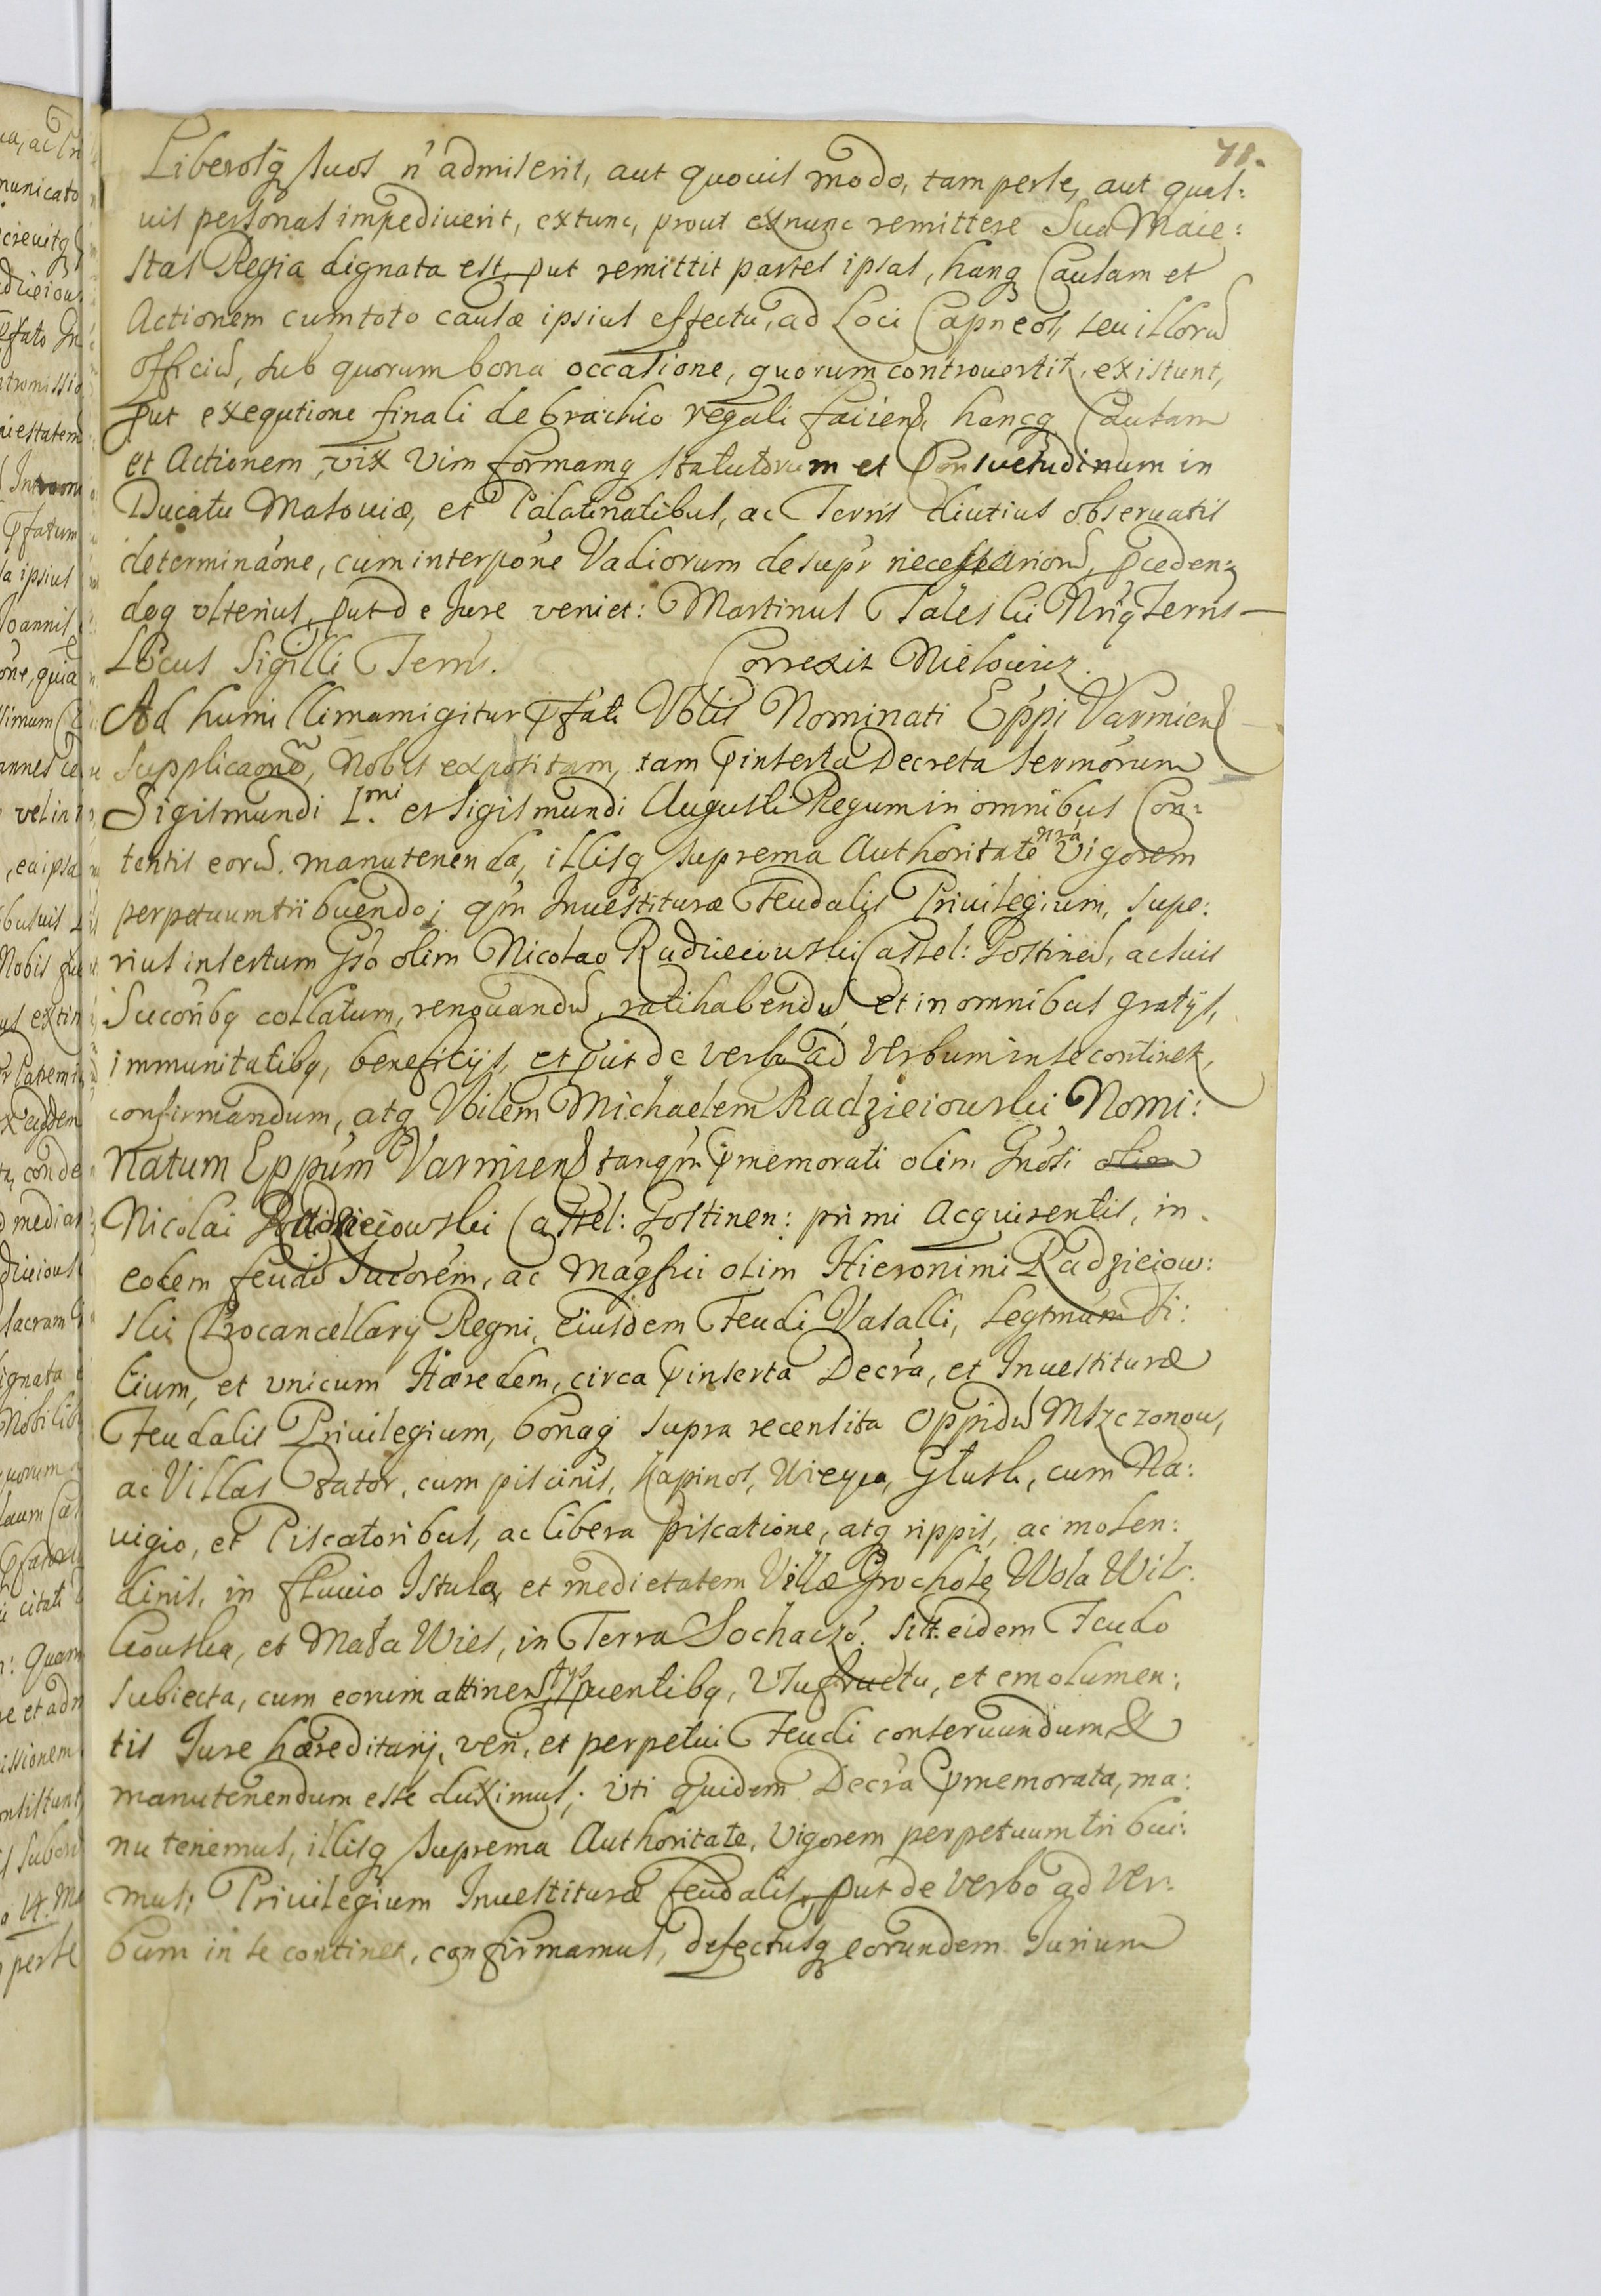 71.
Liberosq̃ suos n̄ admiserit, aut quovis modo, tam per se, aut quas:
vis personas impediverit, extunc, prout exnunc remittere Sua Maie:
stas Regia dignata est, put remittit partes ipsas, hanq Causam et
Actionem cum toto causæ ipsius effectu, ad Loci Capneos, seu illorũ
officiũ, sub quorum bona occasione, quorum controvertit, existunt,
put exequtione finali de brachio regali faciend, hancq Causam
et Actionem, vix Vim formamq statutorum et Consuetudinum in
Ducatu Masoviæ, et Palatinatibus, ac Terris diutius observatis
determinãone, cum interpõne Vadiorum desupr necessariorũ, pceden:
doq ulterius, put de Jure veniet: Martinus Tales Nrijq Terris
Locus Sigilli Terris. Correxit
Ad humillimam igitur pfati Vblis Nominati Eppi Varmien
Supplicaonẽ, Nobis expositam, tam pinserta Decreta sermorum
Sigismundi I.mi et Sigismundi Augusti Regum in omnibus Con:
tentis eorũ manutenenda, illisq suprema Authoritate nrã Vigorem
perpetuum tribuendo; qm Investituræ Feudalis Privilegium, supe:
rius insertum Gso olim Nicolao Radzieiowski Castel: Gostineñ, ac suis
Sucoribq collatum, renovandũ, ratihabendũ, et in omnibus gratijs,
immunitatibq, beneficijs, et put de verbo ad verbum in se continet,
confirmandum, atq Vbilem Michaelem Radzieiowski Nomi:
natum Eppum Varmien tanqm pmemorati olim Gnosi olim
Nicolai Radzieiowski Castel: Gostinen: primi Acquirentis, in
eodem feudo Sucorem, ac Magfici olim Hieronimi Radzieiow:
ski Procancellarij Regni, Eiusdem Feudi Vasalli, Legtmum Fi:
lium, et unicum Hæredem, circa pinserta Decra, et Investituræ
Feudalis Privilegium, bonaq supra recensita Oppidũ Mszczonow,
ac Villas Zator, cum piscinis, Kapinos, Wieyca, Głusk, cum Na:
vigio, et Piscatoribus, ac libera piscatione, atq rippis, ac molen:
dinis, in fluvio Istula, et medietatem Villæ Grochole, Wola Wil:
kowska, et Mała Wies, in Terra Sochaczõ. sitt. eidem Feudo
subiecta, cum eorum attinen ptquentibq, Usufructu, et emolumen:
tis Jure hæreditarij, veri, et perpetui Feudi conservandum &
manutenendum esse duximus; uti quidem Decra pmemorata, ma:
nu tenemus, illisq suprema Authoritate, Vigorem perpetuum tribui:
mus; Privilegium Investituræ feudalis, put de Verbo ad Ver:
bum in se continet, confirmamus, defectusq eorundem Jurium